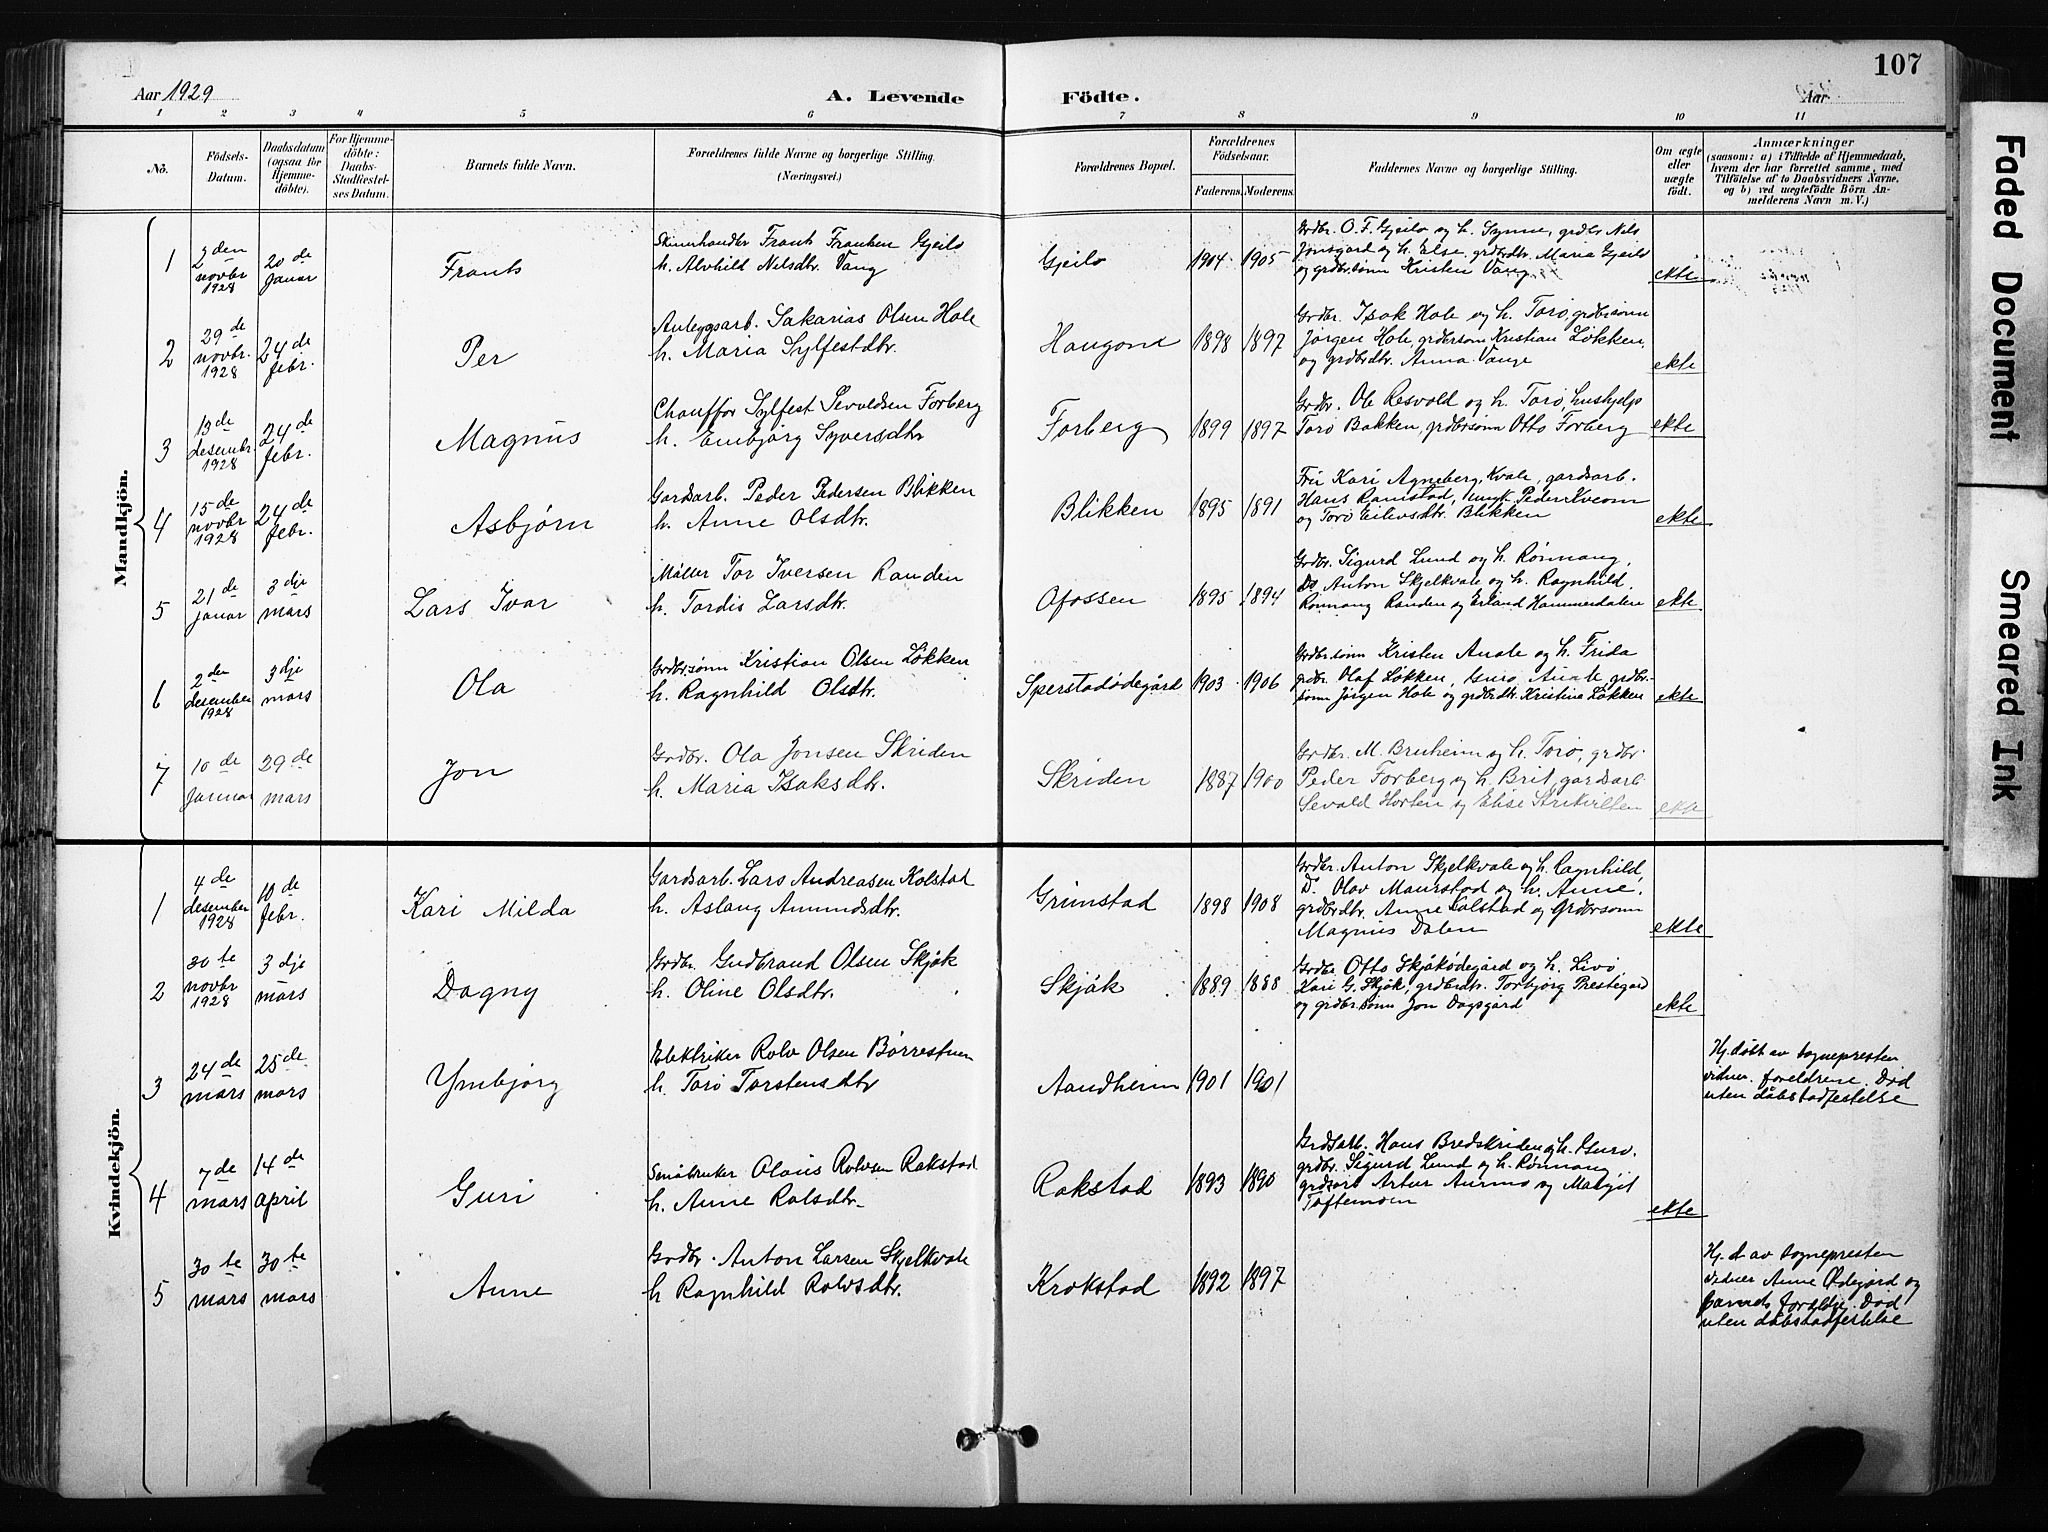 107
Aar 1929
A. Levende Födte.
Aar
1 2 3 4 5 6 7 8 9 10 11
No.
Födsels-Datum.
Daabsdatum (ogsaa for Hjemme-döbte).
For Hjemme-döbte: Daabs-Stadfæstel-ses Datum.
Barnets fulde Navn.
Forældrenes fulde Navne og borgerlige Stilling.
(Næringsvei.)
Forældrenes Bopæl.
Forældrenes Födselsaar.
Faderens. Moderens.
Faddernes Navne og borgerlige Stilling.
Om ægte eller uægte födt.
Anmærkninger
(saasom: a) i Tilfælde af Hjemmedaab,
hvem der har forrettet samme, med
Tilföielse af to Daabsvidners Navne,
og b) ved uægtefödte Börn An-
melderens Navn m. V.)
Mandkjön.
1 2den novbr 1928 20de januar Frants
Skinnhandler Frants Frantsen Gjeilo
h. Alvhild Nilsdtr. Vang
Gjeilo 1904 1905
Grdbr. O. F. Gjeilo og h. Synne, grdbr Nils
Jonsgard og h. Else, grdbrdtr. Maria Gjeilo
og grdbrsønn Kristen Vang
ekte
2 29de novbr. 1928 24de febr. Per
Anleggsarb. Sakarias Olsen Hole
h. Maria Sylfestdtr.
Haugone 1898 1897
Grdbr. Isak Hole og h. Torø, grdbrsønn
Jørgen Hole, grdbrsønn Kristian Løkken,
og grdbrdtr. Anna Vange
ekte
3 13de desembr. 1928 24de febr. Magnus
Chauffør Sylfest Sevaldsen Forberg
h. Embjørg Syversdtr
Forberg 1899 1897
Grdbr. Ole Resvold og h. Torø, hushjelp
Torø Bakken, grdbrsønn Otto Forberg
ekte
4 15de novbr 1928 24de febr. Asbjørn
Gardsarb. Peder Pedersen Blikken
h. Anne Olsdtr.
Blikken 1895 1891
Fru Kari Agneberg, Kvale, gardsarb.
Hans Ramstad, ungk. Peder Kveom
og Torø Eilevsdtr. Blikken
ekte
5 21de januar 3dje mars Lars Ivar
Møller Tor Iversen Randen
h. Tordis Larsdtr.
Ofossen 1895 1894
Grdbr. Sigurd Lund og h. Rønnaug,
Do Anton Skjelkvale og h. Ragnhild,
Rønnaug Randen og Erland Hammerdalen
ekte
6 2den desember 1928 3dje mars Ola
Grdbrsønn Kristian Olsen Løkken
h. Ragnhild Olsdtr.
Sperstadødegård 1903 1906
Grdbrsønn Kristen Auale og h. Frida
grdbr. Olaf Løkken, Guro Auale grdbr-
sønn Jørgen Hole og grdbrdtr. Kristine Løkken
ekte
7 10de januar 29de mars Jon
Grdbr. Ola Jonsen Skriden
h. Maria Isaksdtr.
Skriden 1887 1900
Grdbr. M. Bruheim og h. Torø, grdbr.
Peder Forberg og h. Brit, gardsarb.
Sevald Horten og Elise
ekte
Kvindekjön.
1 4de desember 1928 10de febr. Kari Milda
Gardsarb. Lars Andreasen Kolstad
h. Aslaug Amundsdtr.
Grimstad 1898 1908
Grdbr Anton Skjelkvale og h. Ragnhild,
D. Olav Maurstad og h. Anne,
grdbrdtr. Anne Kolstad og Grdbrsønn
Magnus Dalen
ekte
2 30te novbr 1928 3dje mars Dagny
Grdbr. Gudbrand Olsen Skjåk
h. Oline Olsdtr.
Skjåk 1889 1888
Grdbr. Otto Skjåkødegård og h. Livø,
Kari G. Skjåk, grdbrdtr. Torbjørg Prestegard
og grdbrsønn Jon Dagsgård
ekte
3 24de mars 25de mars Ymbjørg
Elektriker Rolv Olsen Børrestuen
h. Torø Torstensdtr
Aandheim 1901 1901
Hj.døbt av sognepresten
vidner foreldrene. Død
uten dåbstadfestelse
4 7de mars 14de april Guri
Småbruker Olaus Rolvsen Rakstad
h. Anne Rolsdtr.
Rakstad 1893 1890
Grdsarb. Hans Bredskriden og h. Guro,
grdbr. Sigurd Lund og h. Rønnaug,
grdsarb Artur Aurmo og Margit
Toftemoen
ekte
5 30te mars 30te mars Anne
Grdbr. Anton Larsen Skjelkvale
h Ragnhild Rolvsdtr.
Krokstad 1892 1897
Hj. d av sognepresten
vidner Anne Ødegård og
barnets foreldre. Død
uten dåbstadfestelse
Faded Document
Smeared Ink